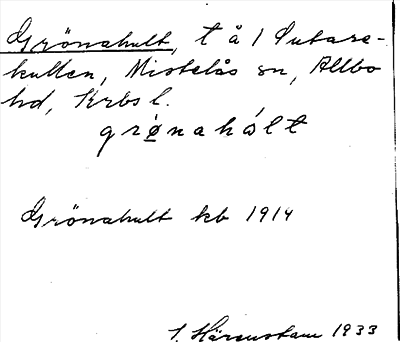 Grönahult, t å 1 Putare-
kullen, Mistelås sn, Allbo
hd, Krbs l.
grǿnahúlt
Grönahult kb 1914
1933